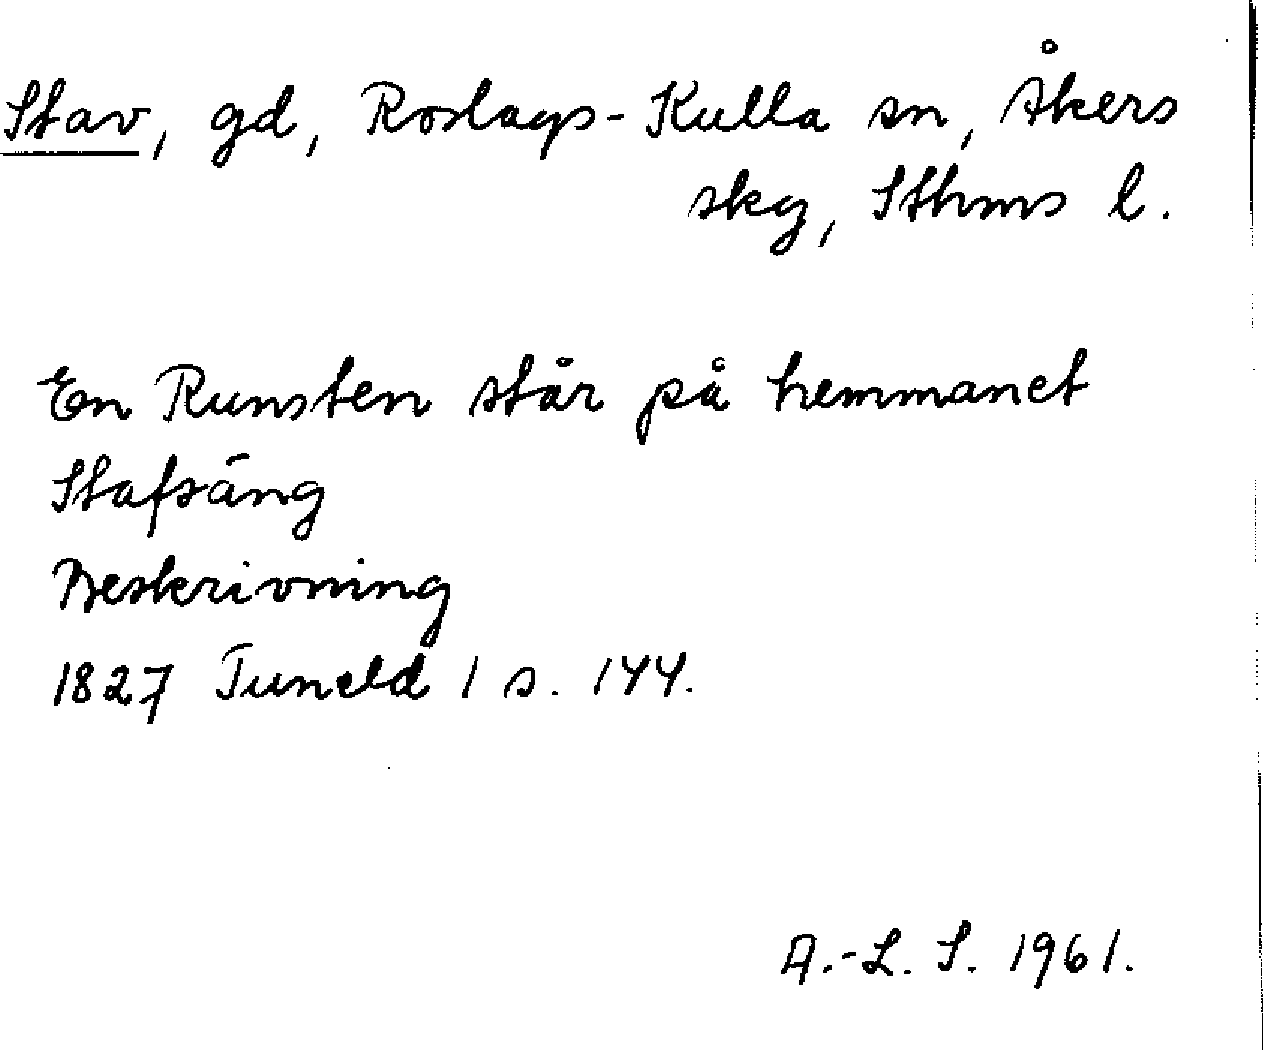 Stav, gd, Roslags-Kulla sn, Åkers
skg, Sthms l.
En Runsten står på hemmanet
Stafsäng
Beskrivning
1827 Tuneld 1 s. 144.
A.-L. S. 1961.